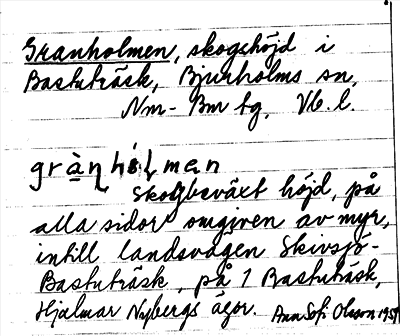 Granholmen, skogshöjd i
Bastuträsk, Bjurholms sn,
Nm - Bm tg, Vb. l.
gràn hòlmen
Skogbeväxt höjd, på
alla sidor omgiven av myr,
intill landsvägen Skivsjö-
Bastuträsk, på 1 Bastuträsk,
Hjalmar Nybergs ägor. Ann Sofi Olsson